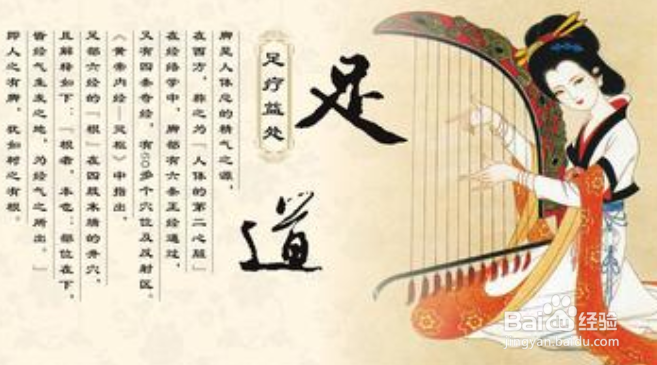 足道
足疗益处
脚是人体总的精气之源，
在西方，称之为『人体的第二心脏』
在经络学中，脚部有六条正经通过，
又有四条奇经，有60多个穴位及反射区。
《黄帝内经—灵枢》中指出，
足部六经的『根』在四肢末端的井穴，
且解释如下：『根者，本也；部位在下，
皆经气生发之地，为经气之所出。』
即人之有脚，犹如树之有根。
Baidu经验
jingyan.baidu.com